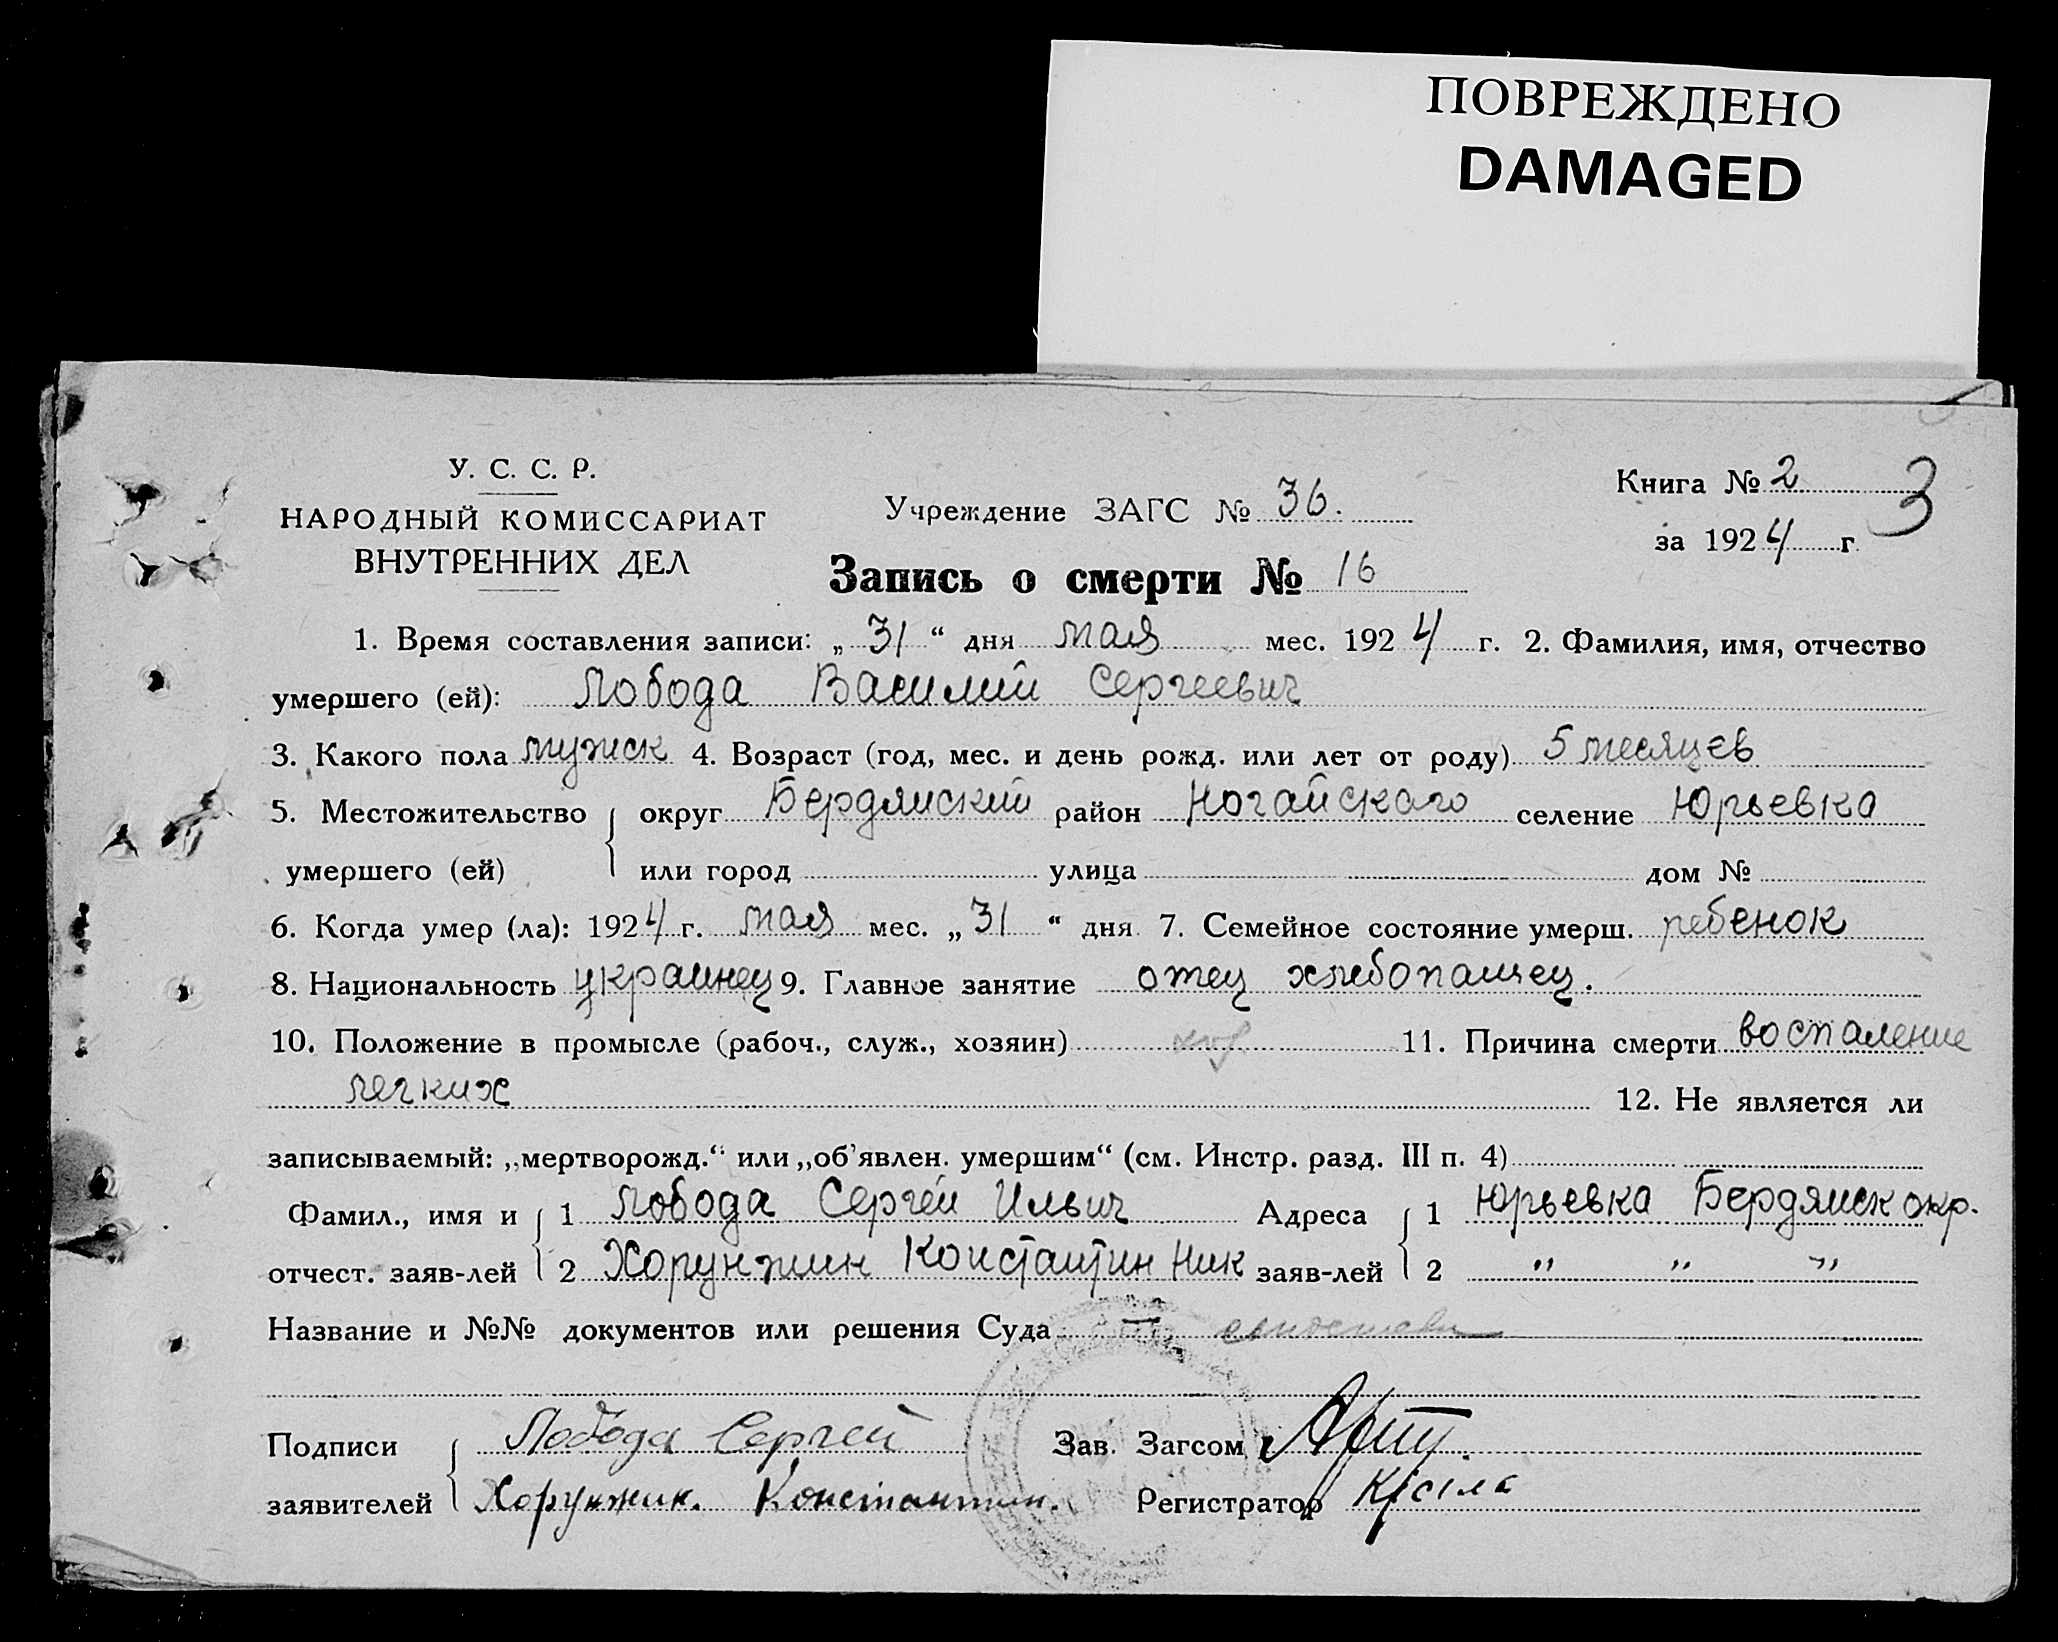 ПОВРЕЖДЕНО
DAMAGED
У. С. С. Р.
НАРОДНЫЙ КОМИССАРИАТ
ВНУТРЕННИХ ДЕЛ
Учреждение ЗАГС № 36.
Книга № 2
3
за 1924 г.
Запись о смерти № 16
1. Время составления записи: „31“ дня мая мес. 1924 г. 2. Фамилия, имя, отчество
умершего (ей): Лобода Василий Сергеевич
3. Какого пола мужск 4. Возраст (год, мес. и день рожд. или лет от роду) 5 месяцев
5. Местожительство округ Бердянский район Ногайского селение Юрьевка
умершего (ей) или город улица дом №
6. Когда умер (ла): 1924 г. мая мес. „31“ дня 7. Семейное состояние умерш. ребенок
8. Национальность украинец 9. Главное занятие отец хлебопашец.
10. Положение в промысле (рабоч., служ., хозяин) 11. Причина смерти воспаление
легких 12. Не является ли
записываемый: „мертворожд.“ или „об'явлен. умершим“ (см. Инстр. разд. III п. 4)
Фамил., имя и 1 Лобода Сергей Ильич Адреса 1 Юрьевка Бердянск окр.
отчест. заяв-лей 2 Хорунжин Константин Ник заяв-лей 2 " " "
Название и №№ документов или решения Суда
Подписи Лобода Сергей Зав. Загсом
заявителей Хорунжин. Константин. Регистратор